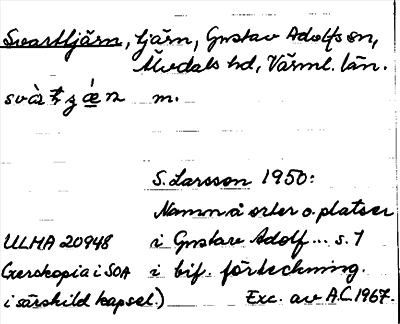 Svarttjärn, tjärn, Gustav Adolfs sn,
Älvdals hd, Värml. län.
m.
S. Larsson 1950:
Namn å orter o. platser
ULMA 20948 i Gustav Adolf... s. 1
(Xeroxkopia i SOA i bif. förteckning.
i särskild kapsel.) Exc. av A.C. 1967.